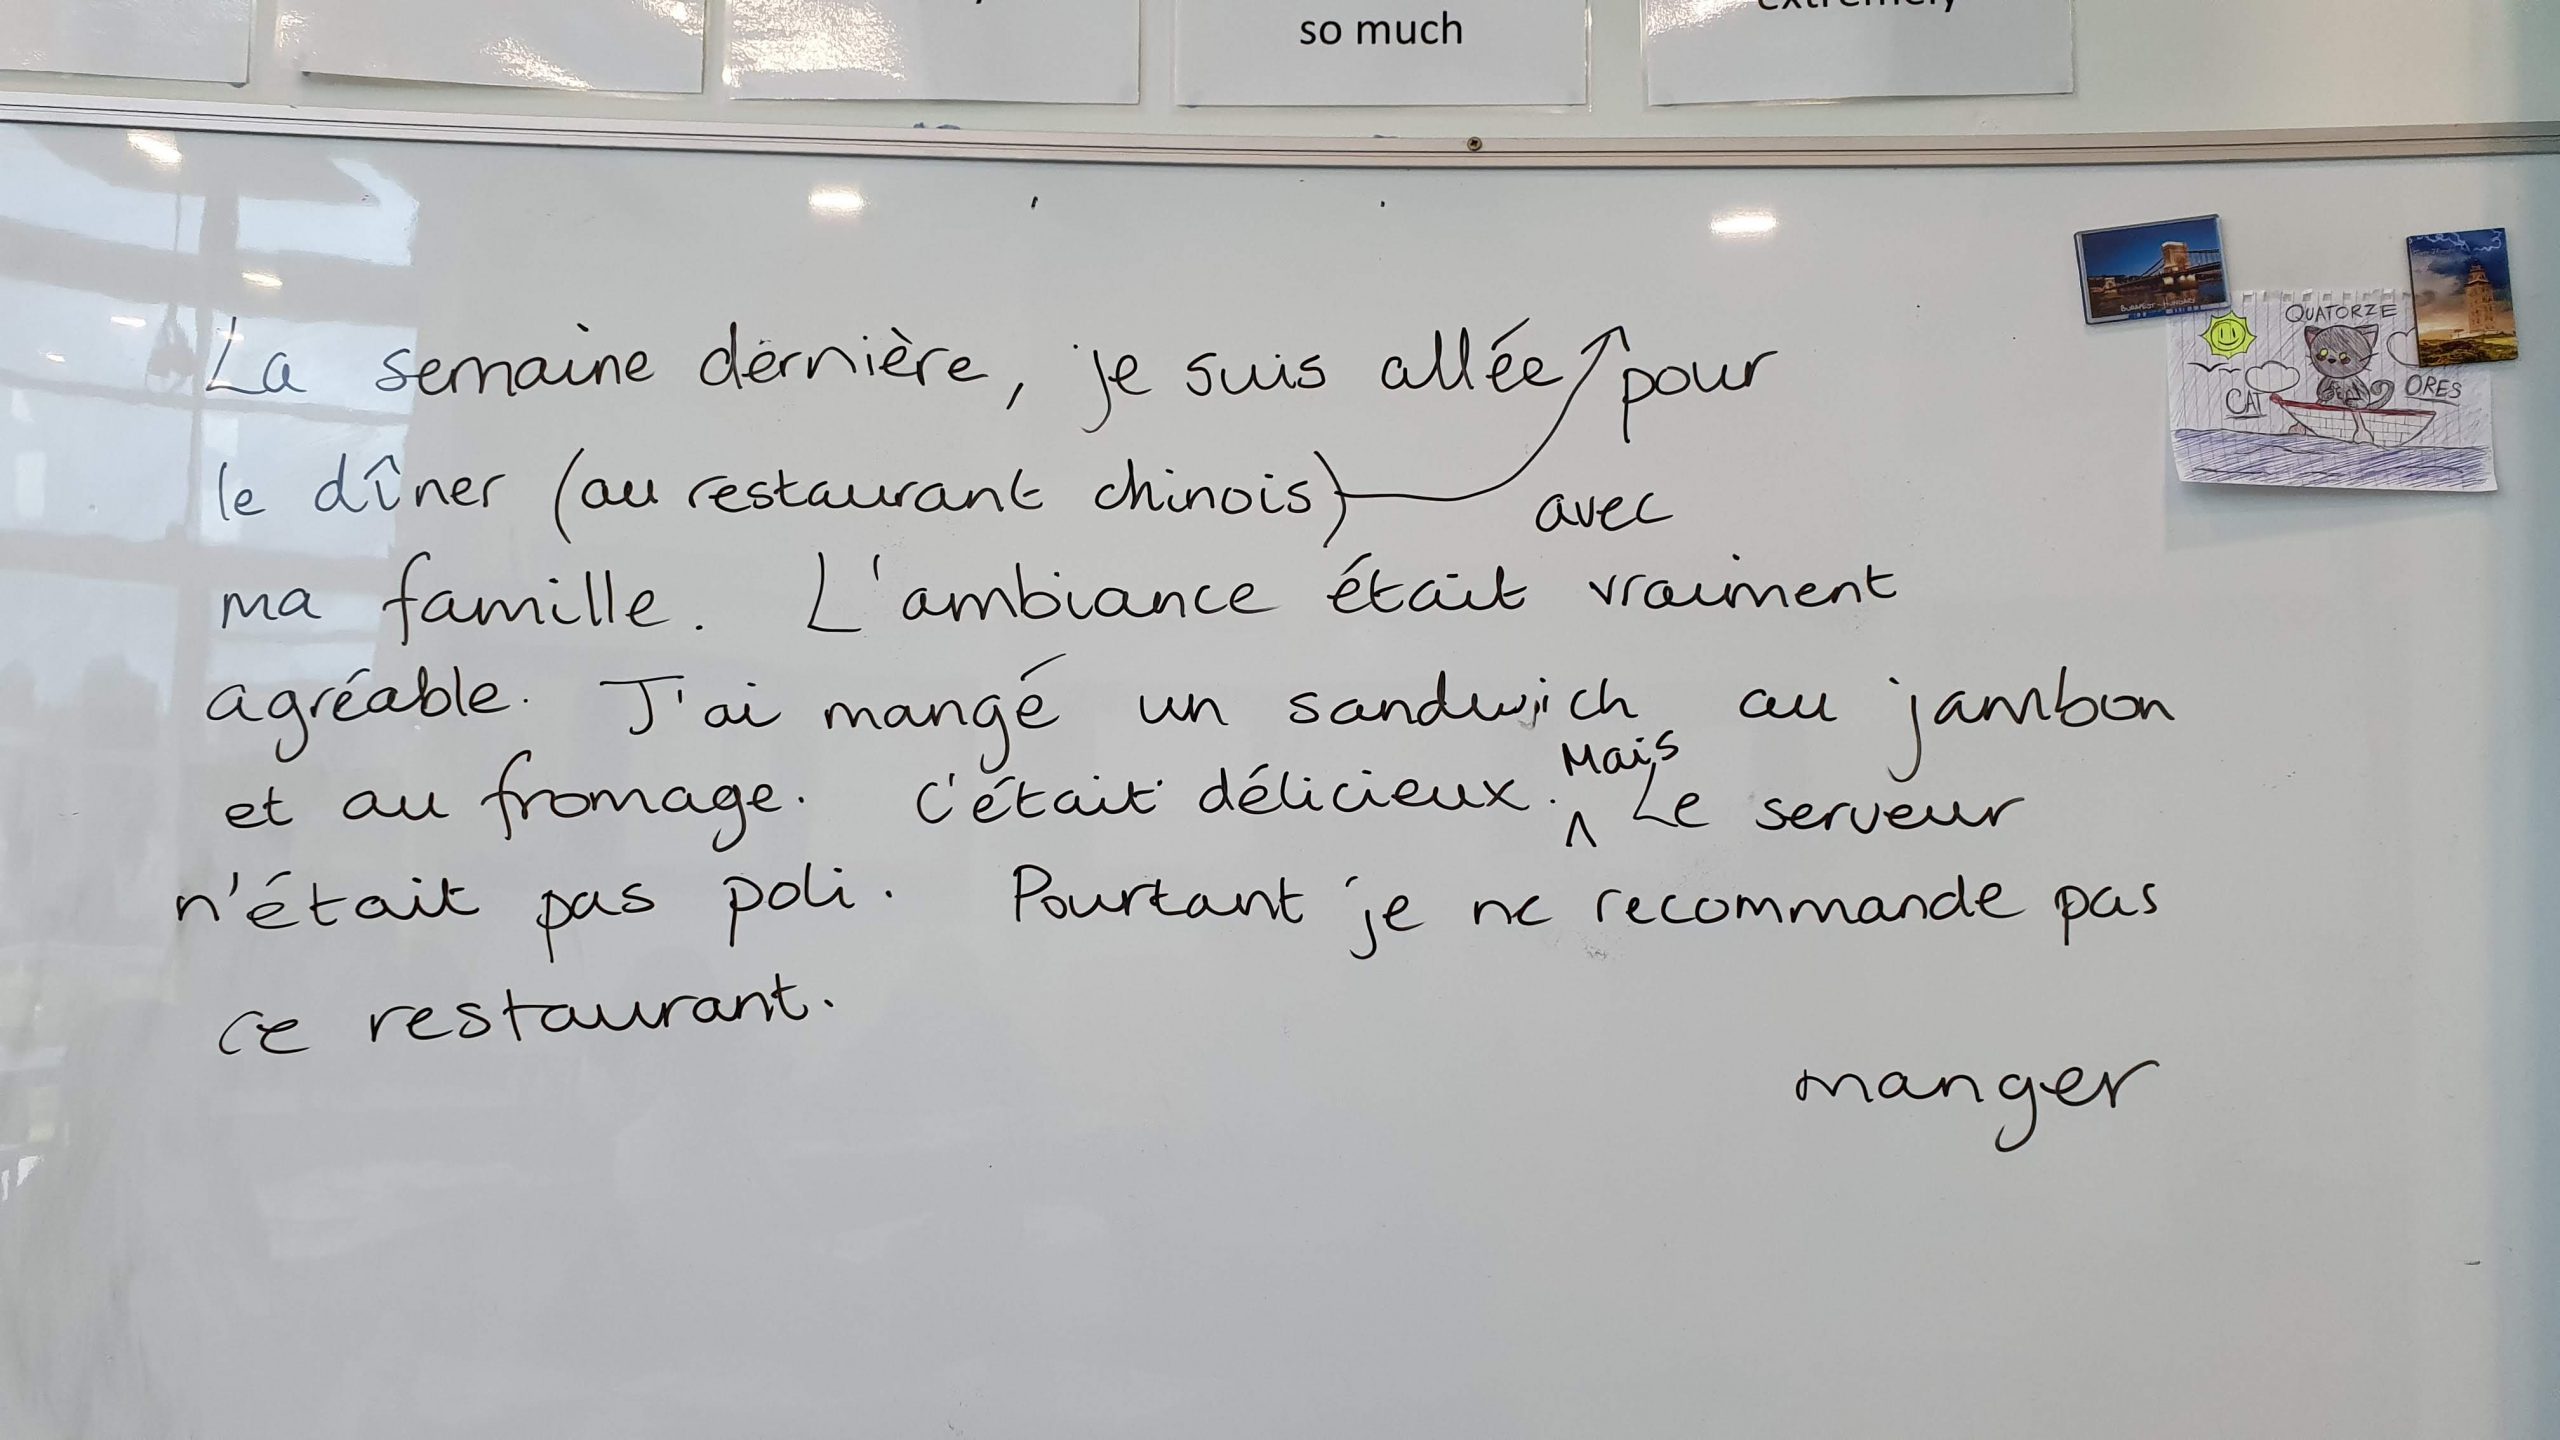 so much
extremely
La semaine dernière, je suis allée pour
le dîner (au restaurant chinois) avec
ma famille. L'ambiance était vraiment
agréable. J'ai mangé un sandwich au jambon
et au fromage. C'était délicieux. Mais Le serveur
n'était pas poli. Pourtant je ne recommande pas
ce restaurant.
manger
QUATORZE
CAT
ORES
BUDAPEST - HUNGARY